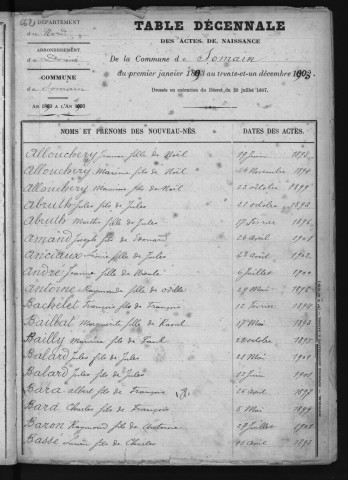 DÉPARTEMENT
du Nord
ARRONDISSEMENT
de Douai
COMMUNE
de Somain
TABLE DÉCENNALE
DES ACTES DE NAISSANCE
De la Commune de Somain
du premier janvier 1893 au trente-et-un décembre 1902
Dressée en exécution du Décret du 20 juillet 1807.
NOMS ET PRÉNOMS DES NOUVEAU-NÉS. DATES DES ACTES.
Allouchery Jeanne fille de Noël 19 Juin 1893
Allouchery Maxime fils de Noël 24 Novembre
Allouchery Maurice fils de Noël 22 octobre 1899
Abruth Jules fils de Jules 22 octobre
Abruth Marthe fille de Jules 17 Février
Amand Joseph fils de 26 Avril 1901
Ariciaux Louis fils de Jules Avril 1902
André Jeanne fille de 6 Juillet
Antoine Raymonde fille de Odille 29 Mai
Bachelet François fils de François 12 Février
Bailbat Marguerite fille de Raoul 17 Mai 1893
Bailly Maurice fils de Paul octobre
Balard Jules fils de Jules 21 Mai 1901
Balard Jules fils de Jules Juin 1902
Bara Albert fils de François 26 Avril 1897
Bard Charles fils de François 8 Mai 1899
Baron Raymond fils de Antoine 29 Juillet
Basse Lucien fils de Charles Avril 1893